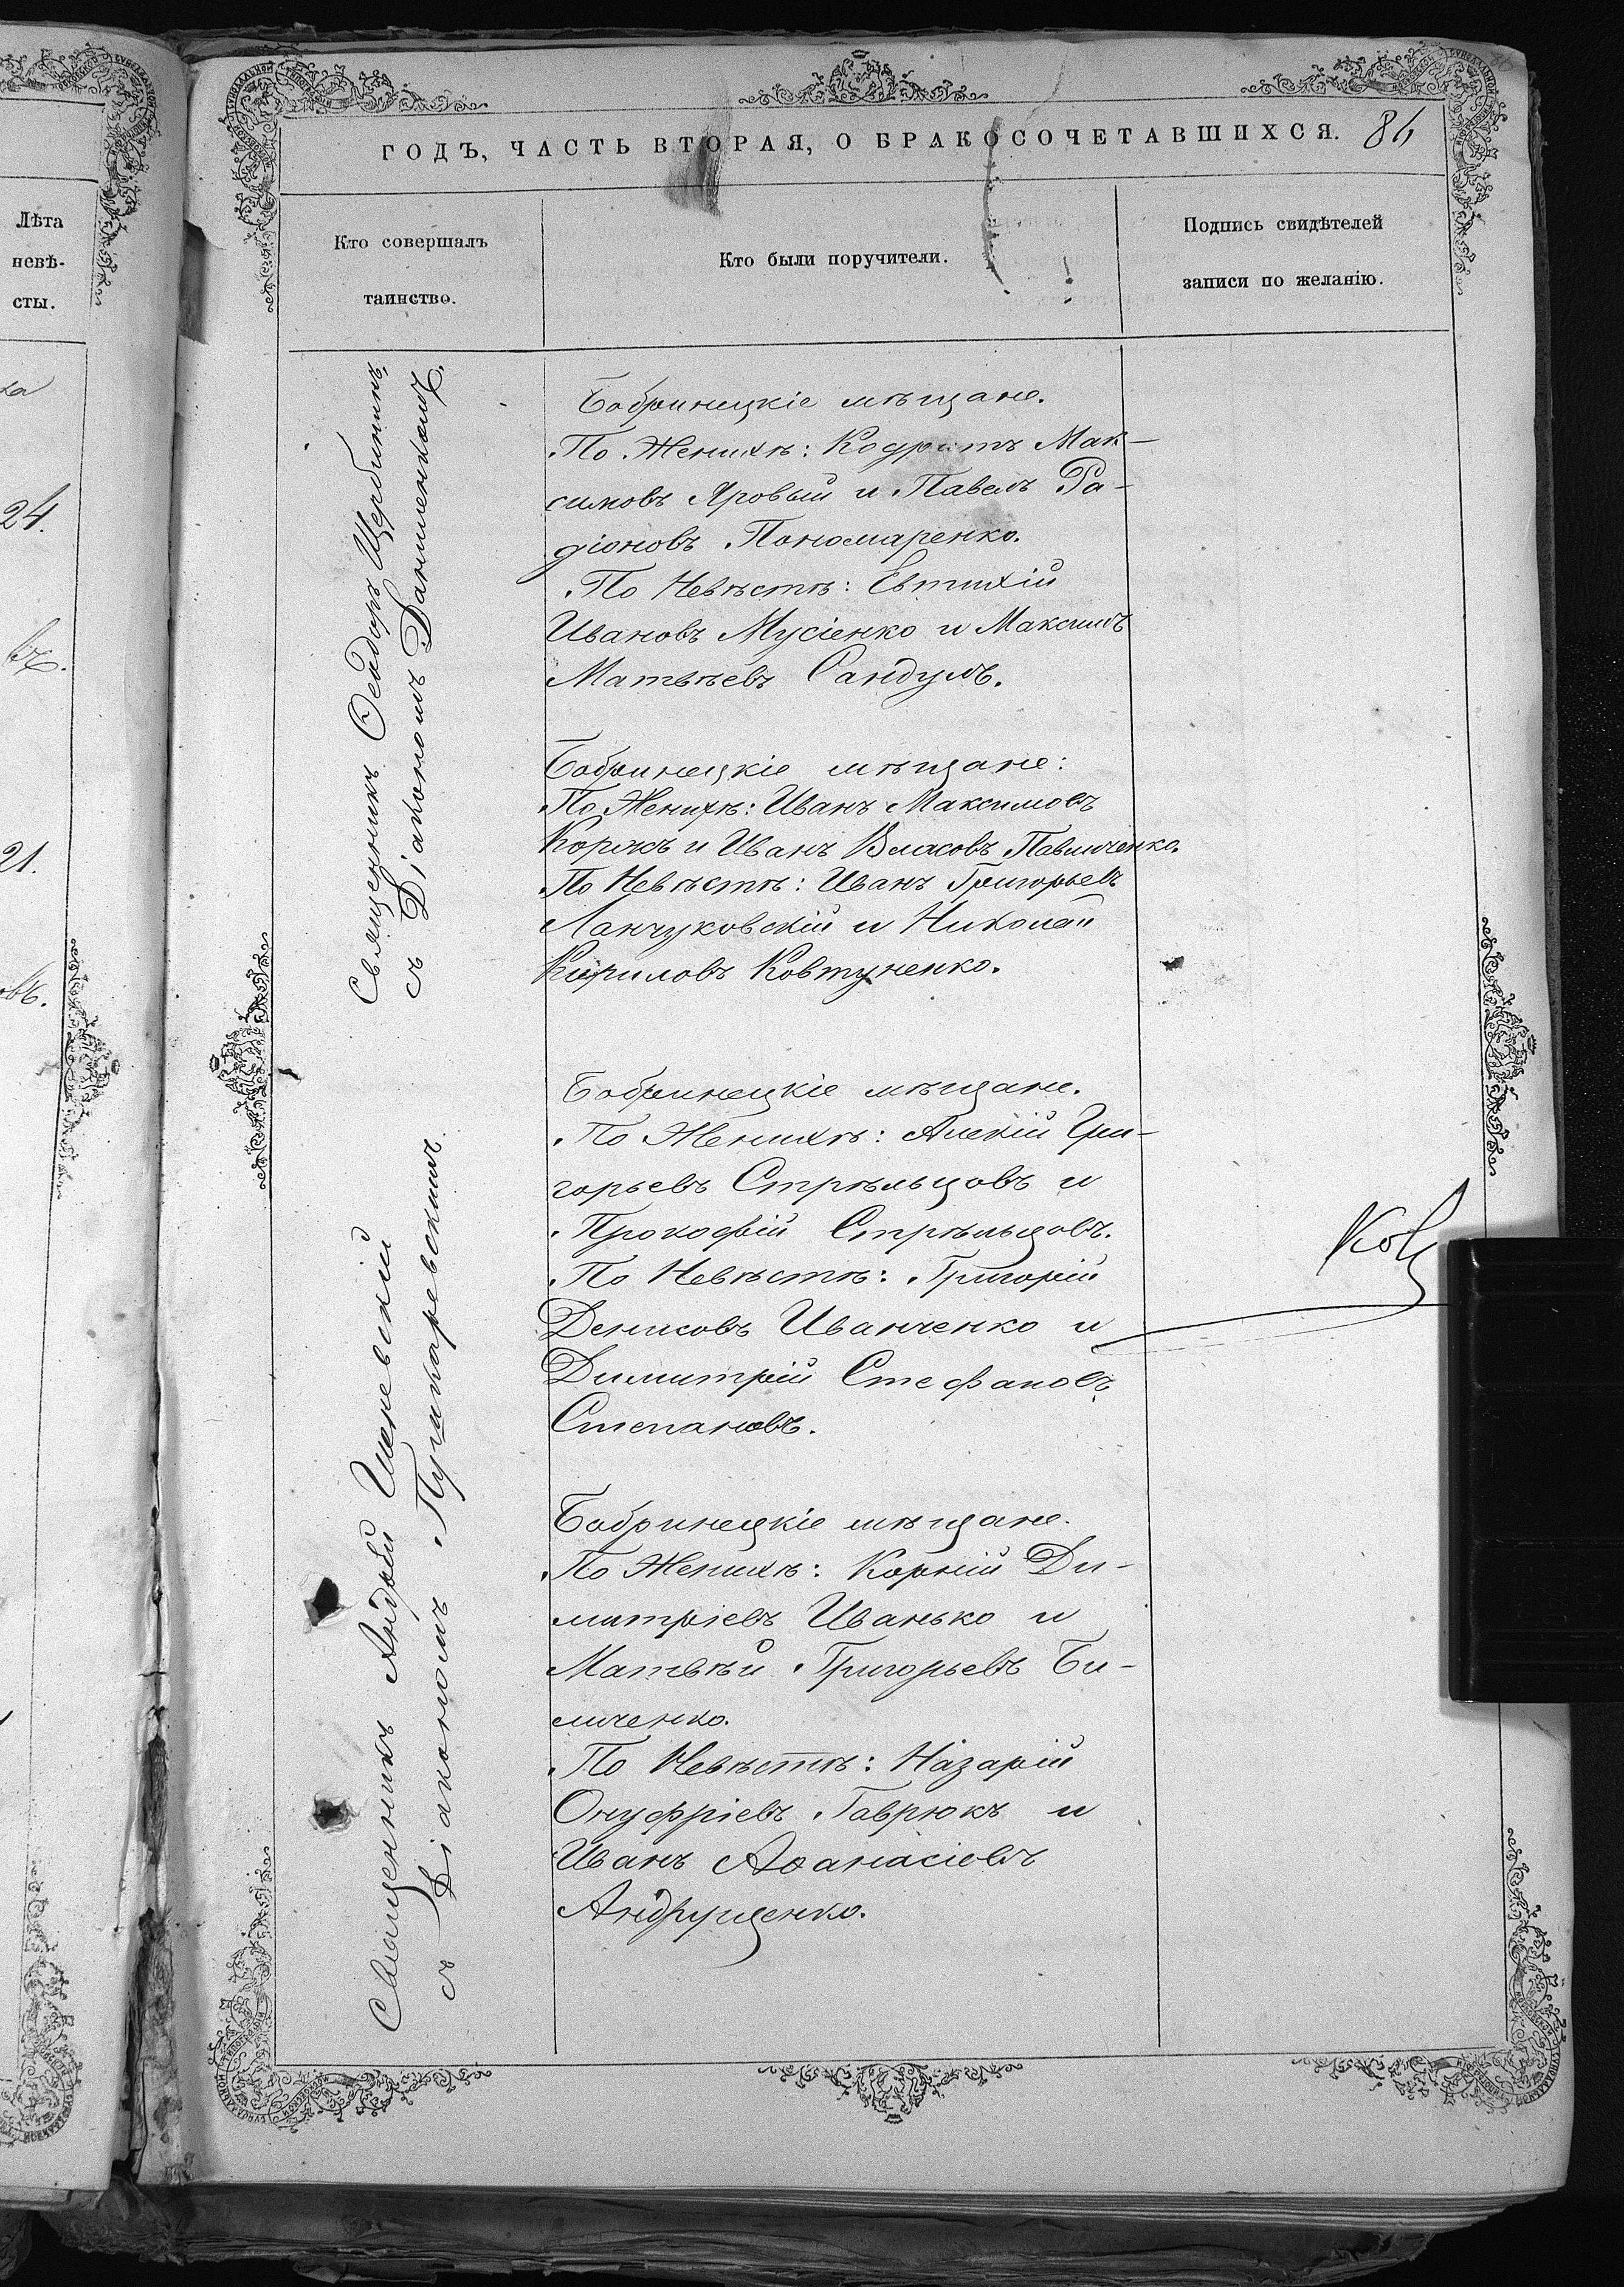 Лѣта
невѣ-
сты.
24.
21.
ГОДЪ, ЧАСТЬ ВТОРАЯ, О БРАКОСОЧЕТАВШИХСЯ.
Кто совершалъ
таинство.
Кто были поручители.
Подпись свидѣтелей
записи по желанію.
Священникъ Ѳеодоръ Щербининъ,
съ Діакономъ Данишенкомъ.
Бобринецкіе мѣщане.
По Женихѣ: Кодратъ Мак-
симовъ Яровый и Павелъ Ра-
діоновъ Пономаренко.
По Невѣстѣ: Евтихій
Ивановъ Мусіенко и Максимъ
Матвѣевъ Сандулъ.
Бобринецкіе мѣщане:
По Женихѣ: Иванъ Максимовъ
Коржъ и Иванъ Власовъ Павличенко.
По Невѣстѣ: Иванъ Григорьевъ
Ланчуковскій и Николай
Кириловъ Ковтуненко.
Священникъ Андрей Шаревскій
съ Діакономъ Пушкаревскимъ
Бобринецкіе мѣщане.
По Женихѣ: Алексій Гри-
горьевъ Стрѣльцовъ и
Прокофій Стрѣльцовъ.
По Невѣстѣ: Григорій
Денисовъ Иванченко и
Димитрій Стефановъ
Степановъ.
Бобринецкіе мѣщане.
По Женихѣ: Корній Ди-
митріевъ Иванько и
Матвѣй Григорьевъ Би-
личенко.
По Невѣстѣ: Назарій
Онуфріевъ Гаврюкъ и
Иванъ Аѳанасіевъ
Андрущенко.